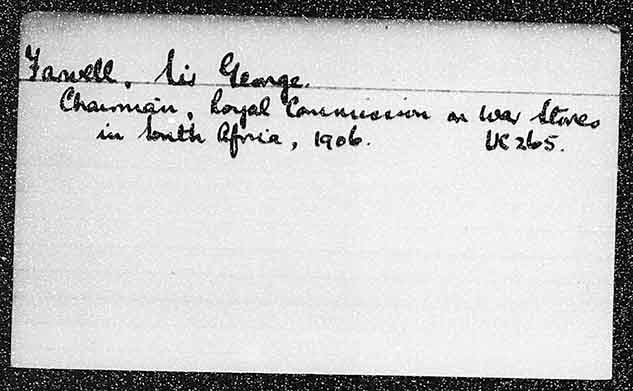 Farwell, Sir George.
Chairman, Royal Commission on War Stores
in South Africa, 1906. UC 265.